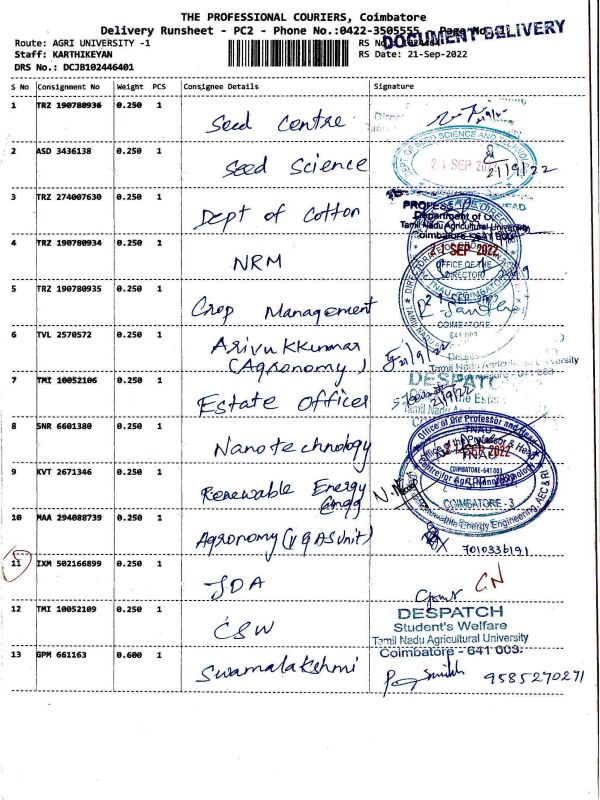 THE PROFESSIONAL COURIERS, Coimbatore
Delivery Runsheet - PC2 - Phone No.:0422-3505555 Page No.:1
DOCUMENT DELIVERY
Route: AGRI UNIVERSITY -1
Staff: KARTHIKEYAN RS Date: 21-Sep-2022
DRS No.: DCJB102446401
S No Consignment No Weight PCS Consignee Details Signature
1 TRZ 190780936 0.250 1 Seed Centre
2 ASD 3436138 0.250 1 Seed Science 21 SEP 2022 21/9/22
3 TRZ 274007630 0.250 1 Dept of Cotton
PROFESSOR HEAD
Department of
Tamil Nadu Agricultural University
4 TRZ 190780934 0.250 1 NRM
21 SEP 2022
OFFICE OF THE
DIRECTOR
5 TRZ 190780935 0.250 1 Crop Management
COIMBATORE
641 003
6 TVL 2570572 0.250 1 Arivukkumar
(Agronomy) 21/9/22
7 TMI 10052106 0.250 1 Estate Officer
DESPATCH
21/9/22
8 SNR 6601380 0.250 1 Nanotechnology
Office of the Professor and Head
TNAU
21 SEP 2022
COIMBATORE-641 003
9 KVT 2671346 0.250 1 Renewable Energy
Engg
COIMBATORE - 3
Renewable Energy Engineering, AEC & RI
10 MAA 294088739 0.250 1 Agronomy (V Q AS Unit)
7010336191
11 IXM 502166899 0.250 1 JDA
CN
12 TMI 10052109 0.250 1 CSW
DESPATCH
Student's Welfare
Tamil Nadu Agricultural University
Coimbatore - 641 003.
13 GPM 661163 0.600 1 Swarnalakshmi 9585270271